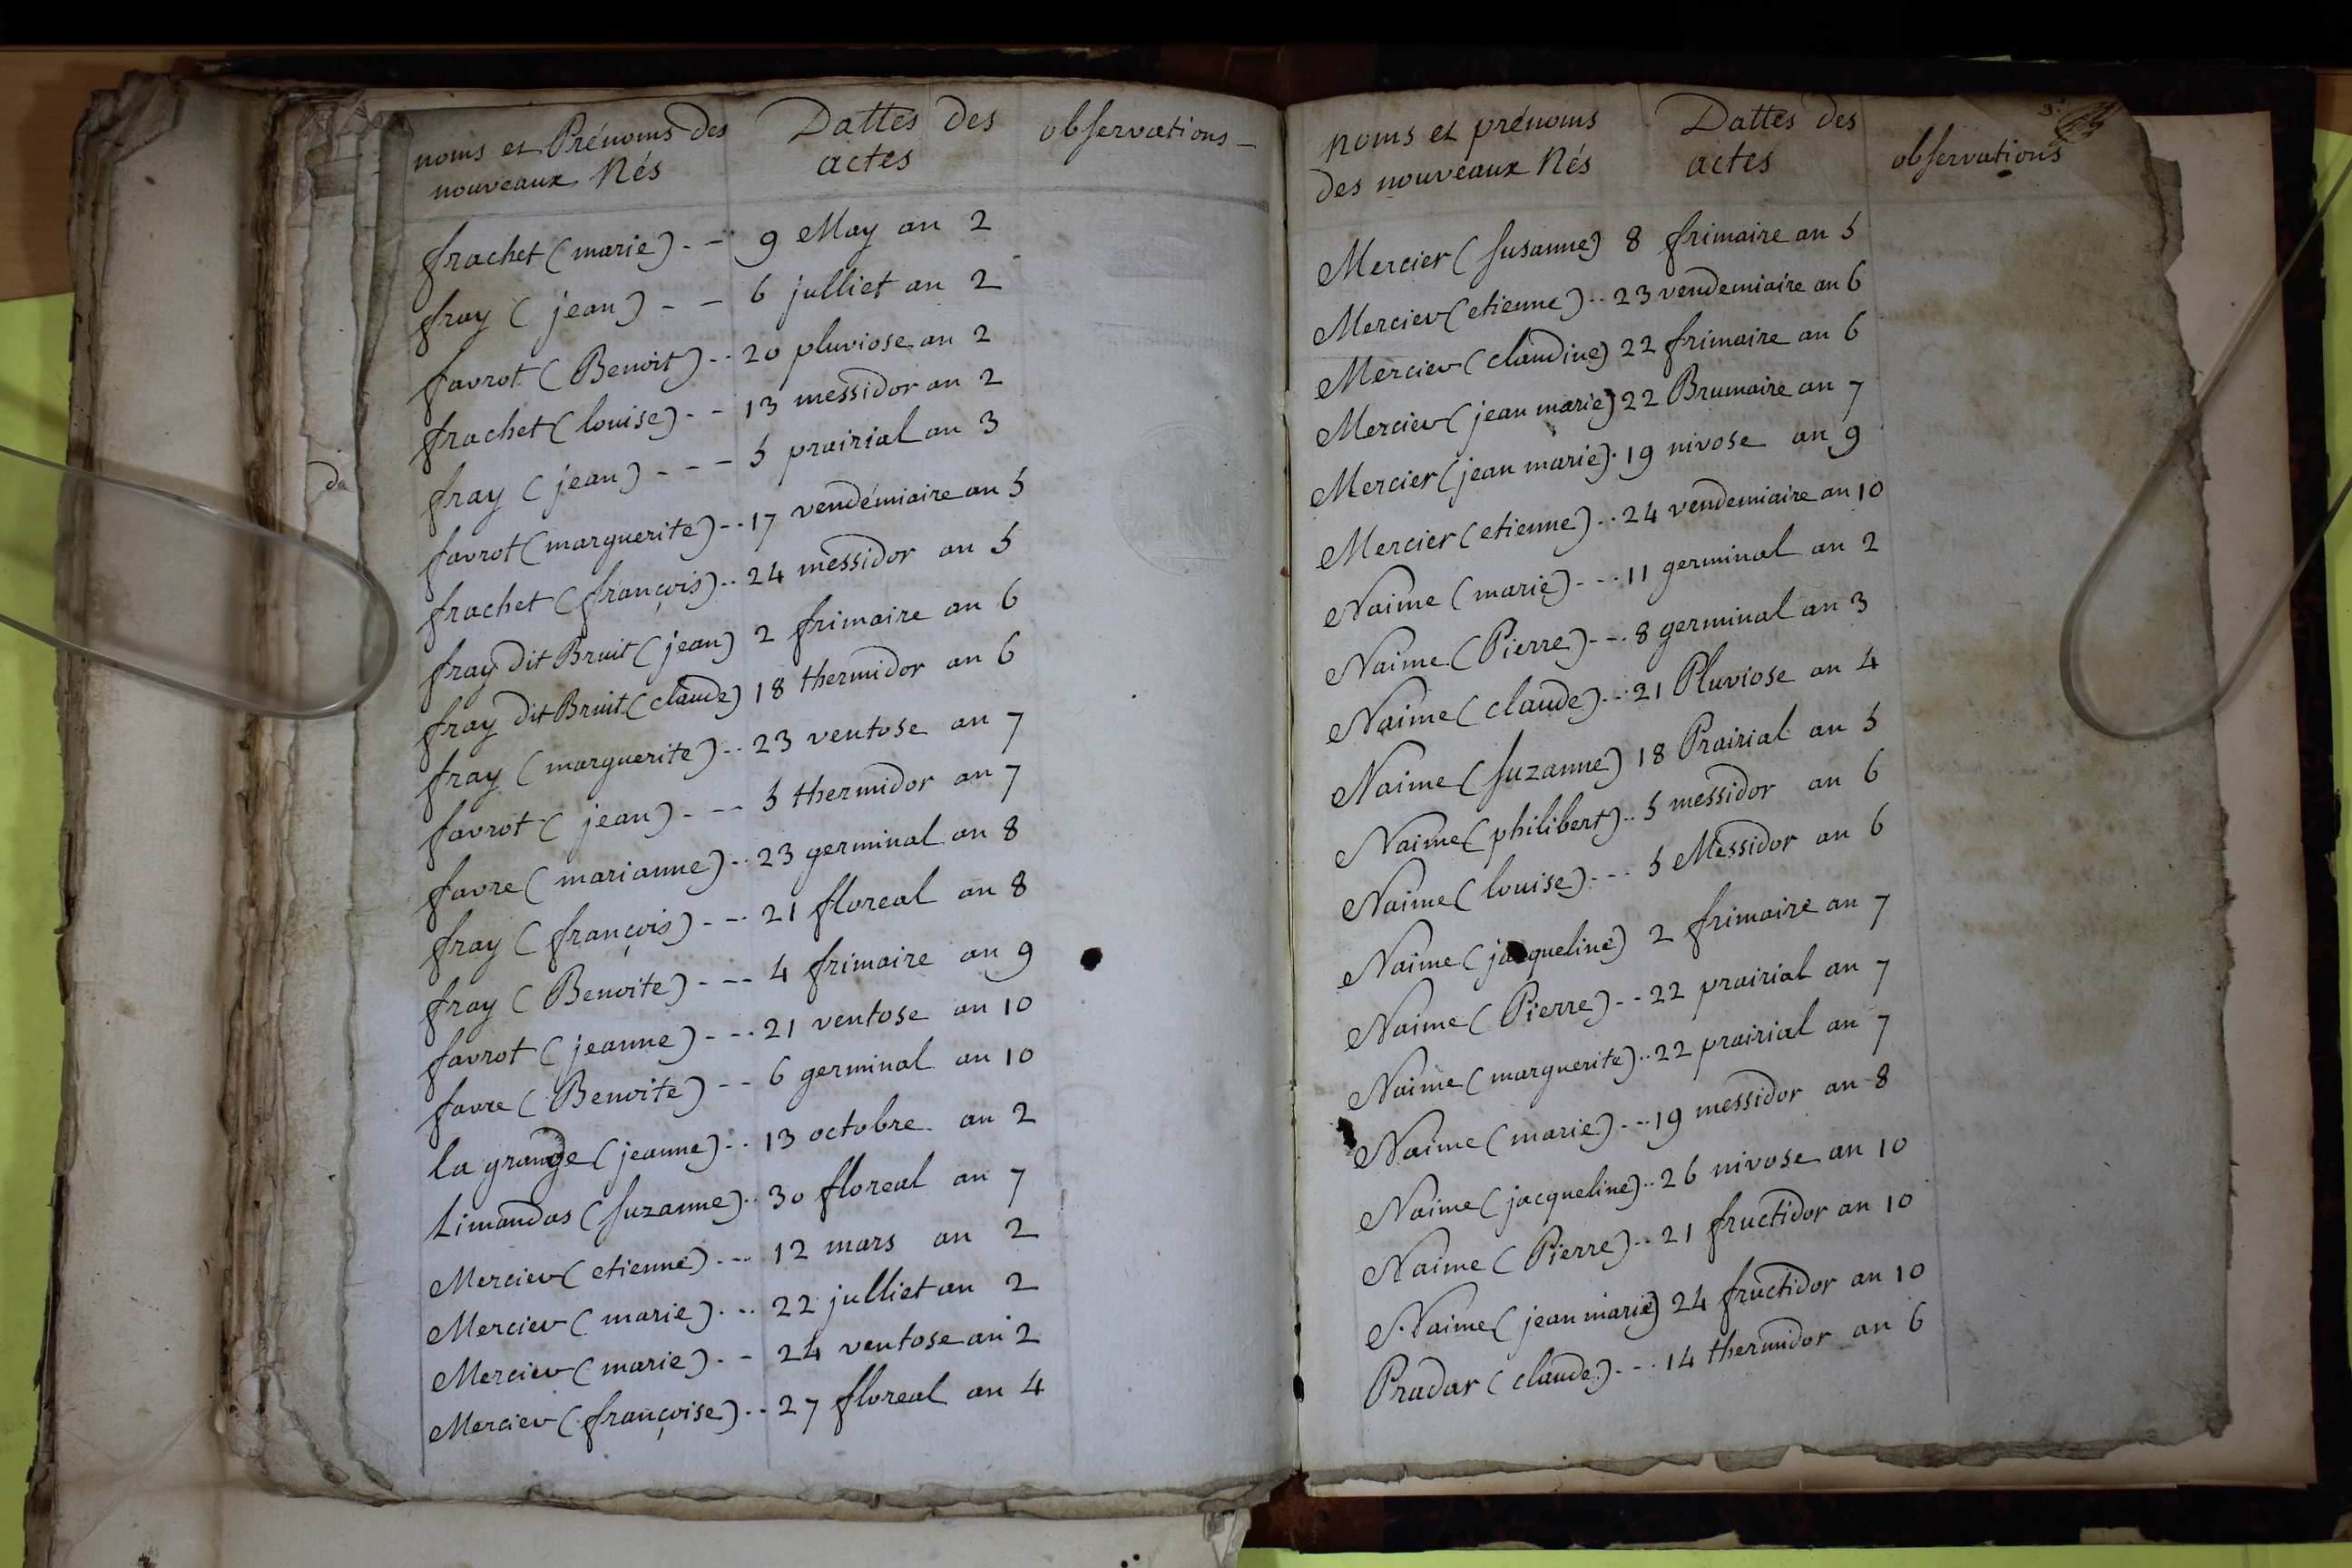 noms et Prénoms des nouveaux Nés Dattes des actes observations
frachet (marie) - - 9 May an 2
fray (jean) - - 6 julliet an 2
favrot (Benoit) - - 20 pluviose an 2
frachet (louise) - - 13 messidor an 2
fray (jean) - - - 5 prairial an 3
favrot (marguerite) - - 17 vendémiaire an 5
frachet (françois) - - 24 messidor an 5
fray dit Bruit (jean) 2 frimaire an 6
fray dit Bruit (claude) 18 thermidor an 6
fray (marguerite) - - 23 ventose an 7
favrot (jean) - - - 5 thermidor an 7
favre (marianne) - - 23 germinal an 8
fray (françois) - - - 21 floreal an 8
fray (Benoite) - - - 4 frimaire an 9
favrot (jeanne) - - - 21 ventose an 10
favre (Benoite) - - 6 germinal an 10
la grange (jeanne) - - 13 octobre an 2
Limandas (suzanne) - - 30 floreal an 7
Mercier (etienne) - - - 12 mars an 2
Mercier (marie) - - - 22 julliet an 2
Mercier (marie) - - 24 ventose an 2
Mercier (françoise) - - 27 floreal an 4
noms et prénoms des nouveaux Nés Dattes des actes observations
Mercier (susanne) 8 frimaire an 5
Mercier (etienne) - - 23 vendemiaire an 6
Mercier (claudine) 22 frimaire an 6
Mercier (jean marie) 22 Brumaire an 7
Mercier (jean marie) - 19 nivose an 9
Mercier (etienne) - - 24 vendemiaire an 10
Naime (marie) - - - 11 germinal an 2
Naime (Pierre) - - - 8 germinal an 3
Naime (claude) - - - 21 Pluviose an 4
Naime (suzanne) 18 Prairial an 5
Naime (philibert) - - 5 messidor an 6
Naime (louise) - - - 5 Messidor an 6
Naime (jacqueline) 2 frimaire an 7
Naime (Pierre) - - 22 prairial an 7
Naime (marguerite) - - 22 prairial an 7
Naime (marie) - - - 19 messidor an 8
Naime (jacqueline) - - 26 nivose an 10
Naime (Pierre) - - 21 fructidor an 10
Naime (jean marie) 24 fructidor an 10
Pradar (claude) - - - 14 thermidor an 6